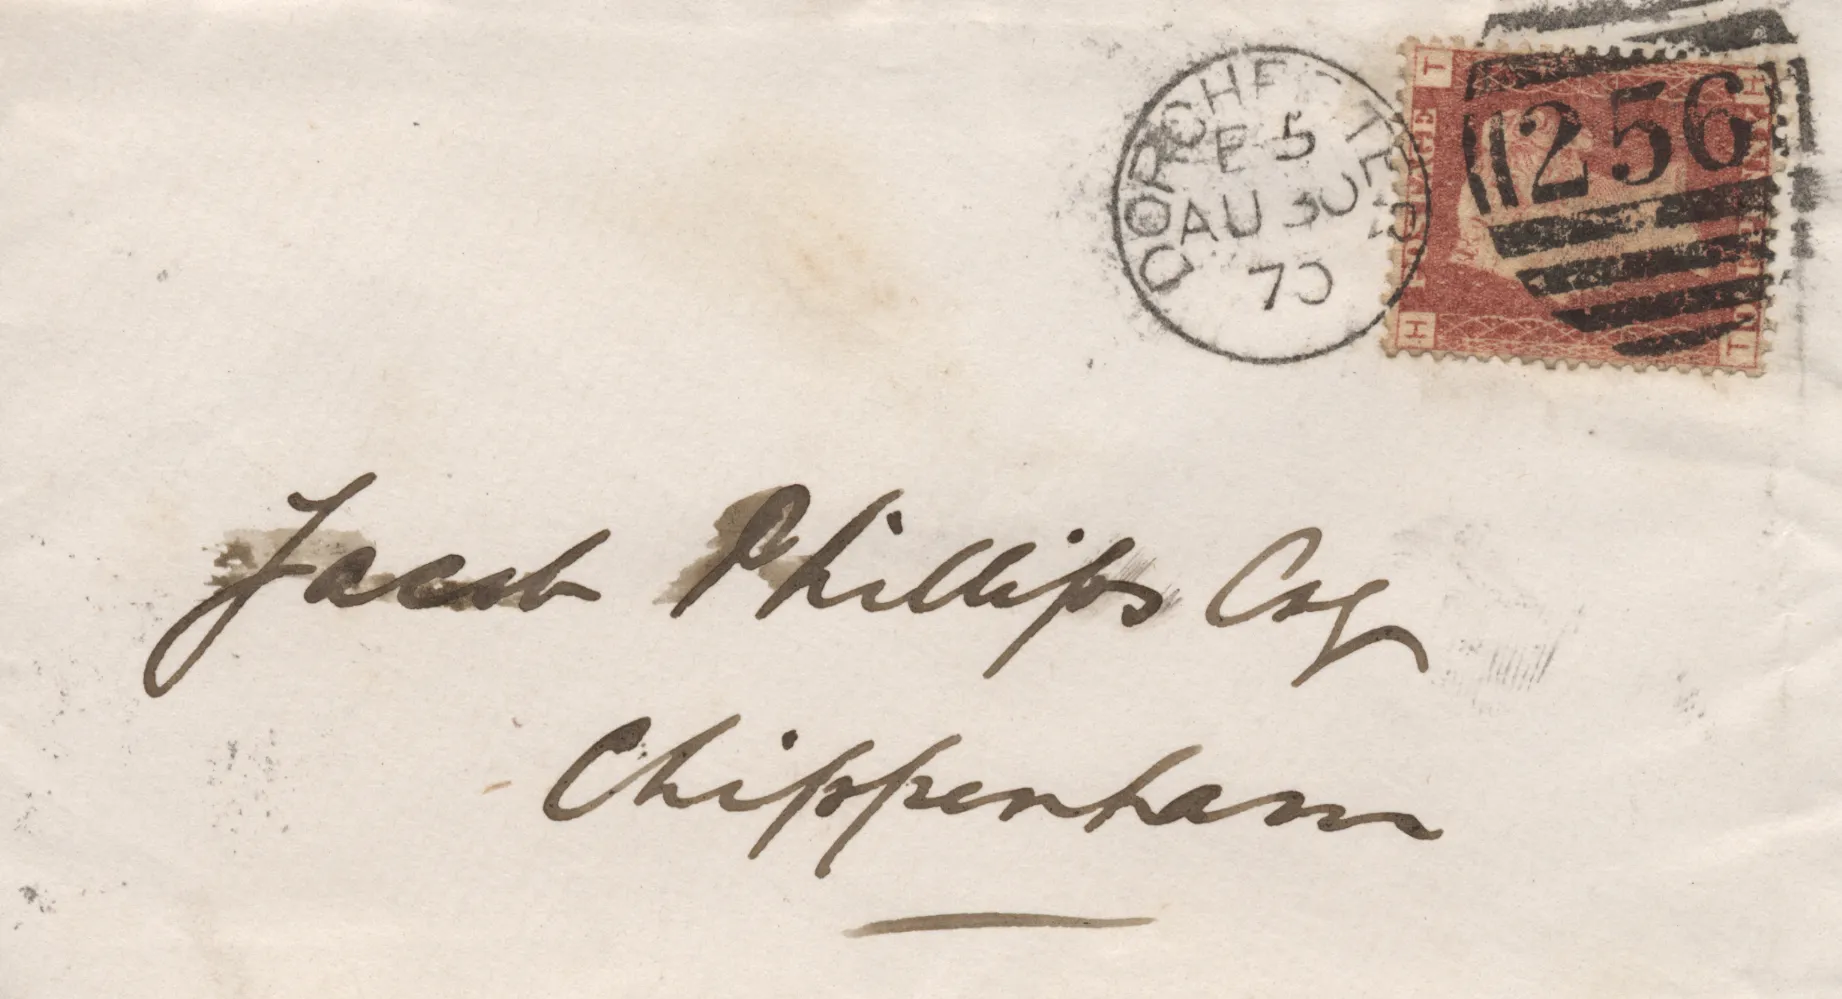 DORCHESTER
E 5
AU 30
70
256
T H
POSTAGE
ONE PENNY
H T
Jacob Phillips Esq
Chippenham